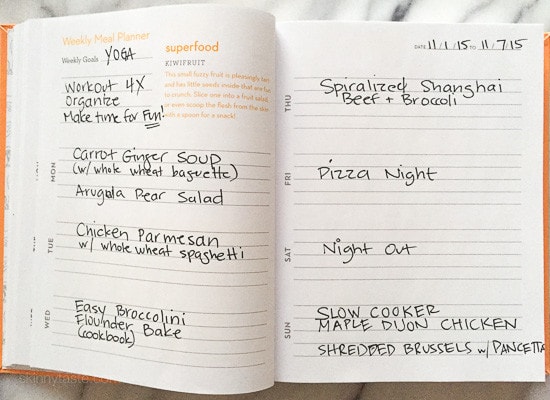 Weekly Meal Planner
Weekly Goals YOGA
Workout 4X
Organize
Make time for Fun!
superfood
KIWIFRUIT
This small fuzzy fruit is pleasingly tart
and has little seeds inside that are fun
to crunch. Slice one into a fruit salad,
or even scoop the flesh from the skin
with a spoon for a snack!
MON
Carrot Ginger Soup
(w/ whole wheat baguette)
Arugula Pear Salad
TUE
Chicken Parmesan
w/ whole wheat spaghetti
WED
Easy Broccolini
Flounder Bake
(cookbook)
DATE 11/1/15 TO 11/7/15
THU
Spiralized Shanghai
Beef + Broccoli
FRI
Pizza Night
SAT
Night Out
SUN
SLOW COOKER
MAPLE DIJON CHICKEN
SHREDDED BRUSSELS w/ PANCETTA